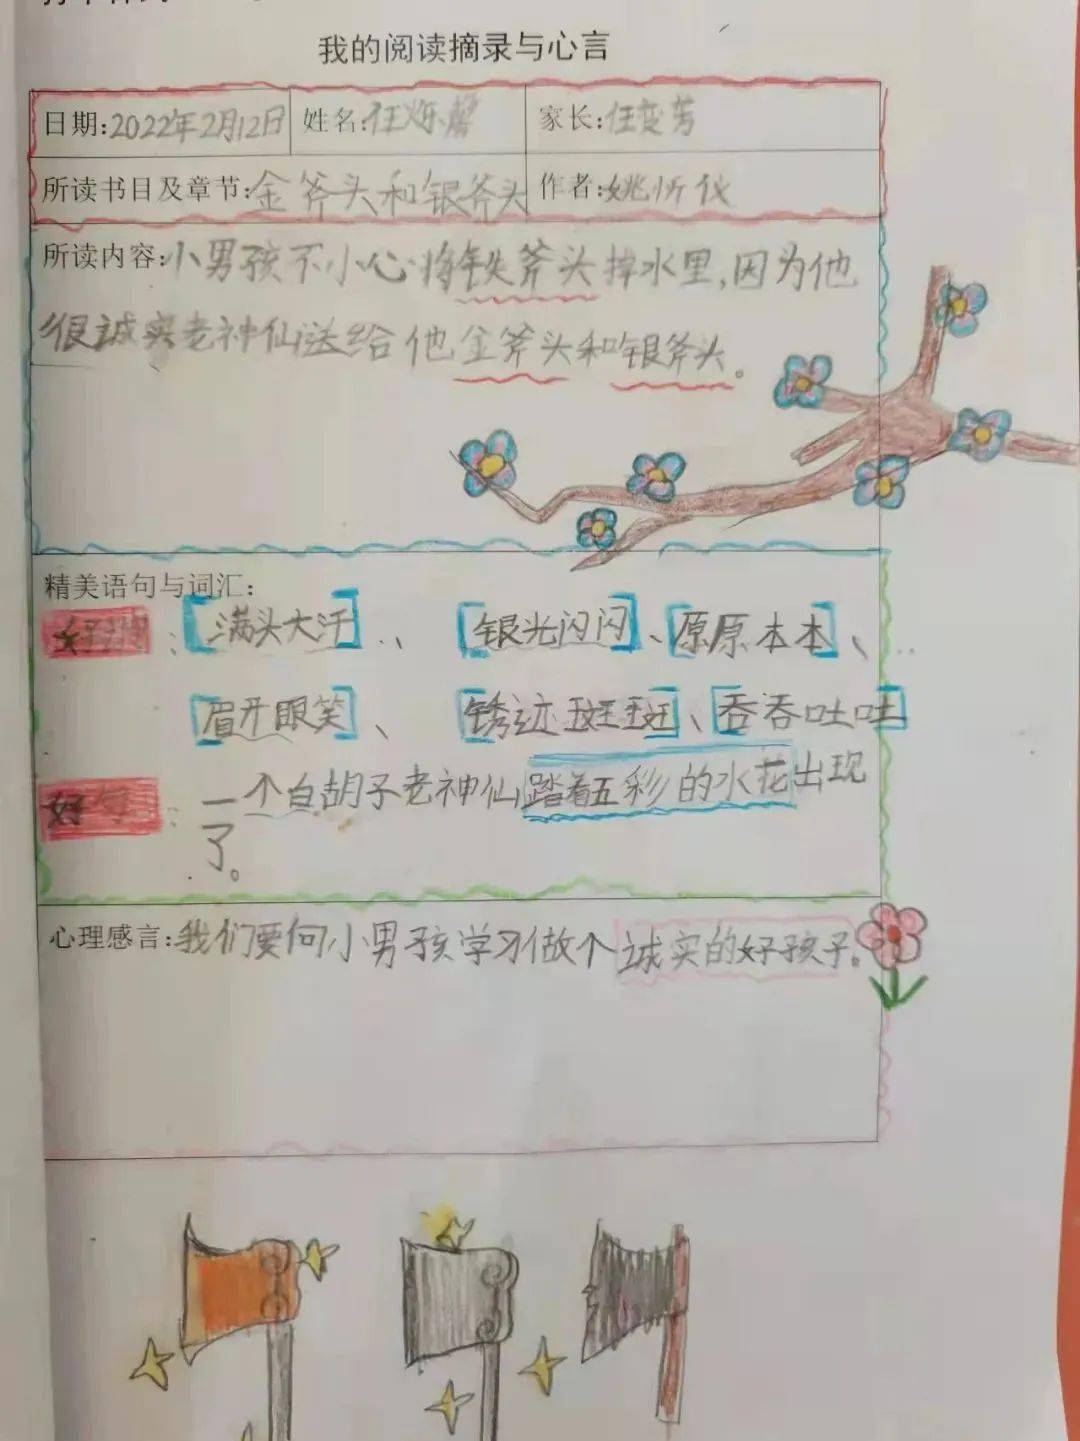 我的阅读摘录与心言
日期:2022年2月12日 姓名:任烁 家长:任变芳
所读书目及章节:金斧头和银斧头 作者:姚忻仪
所读内容:小男孩不小心将铁斧头掉水里,因为他
很诚实老神仙送给他金斧头和银斧头。
精美语句与词汇:
好词: 满头大汗、银光闪闪、原原本本、
眉开眼笑、锈迹斑斑、吞吞吐吐
好句: 一个白胡子老神仙踏着五彩的水花出现
了。
心理感言:我们要向小男孩学习做个诚实的好孩子。